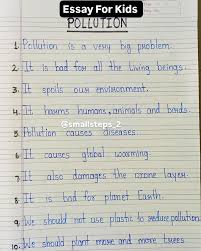 Essay For Kids
POLLUTION
1. Pollution is a very big problem.
2. It is bad for all the living beings.
3. It spoils our environment.
4. It harms humans, animals and birds.
@smallsteps_2
5. Pollution causes diseases.
6. It causes global warming.
7. It also damages the ozone layer.
8. It is bad for planet Earth.
9. We should not use plastic to reduce pollution.
10. We should plant more and more trees